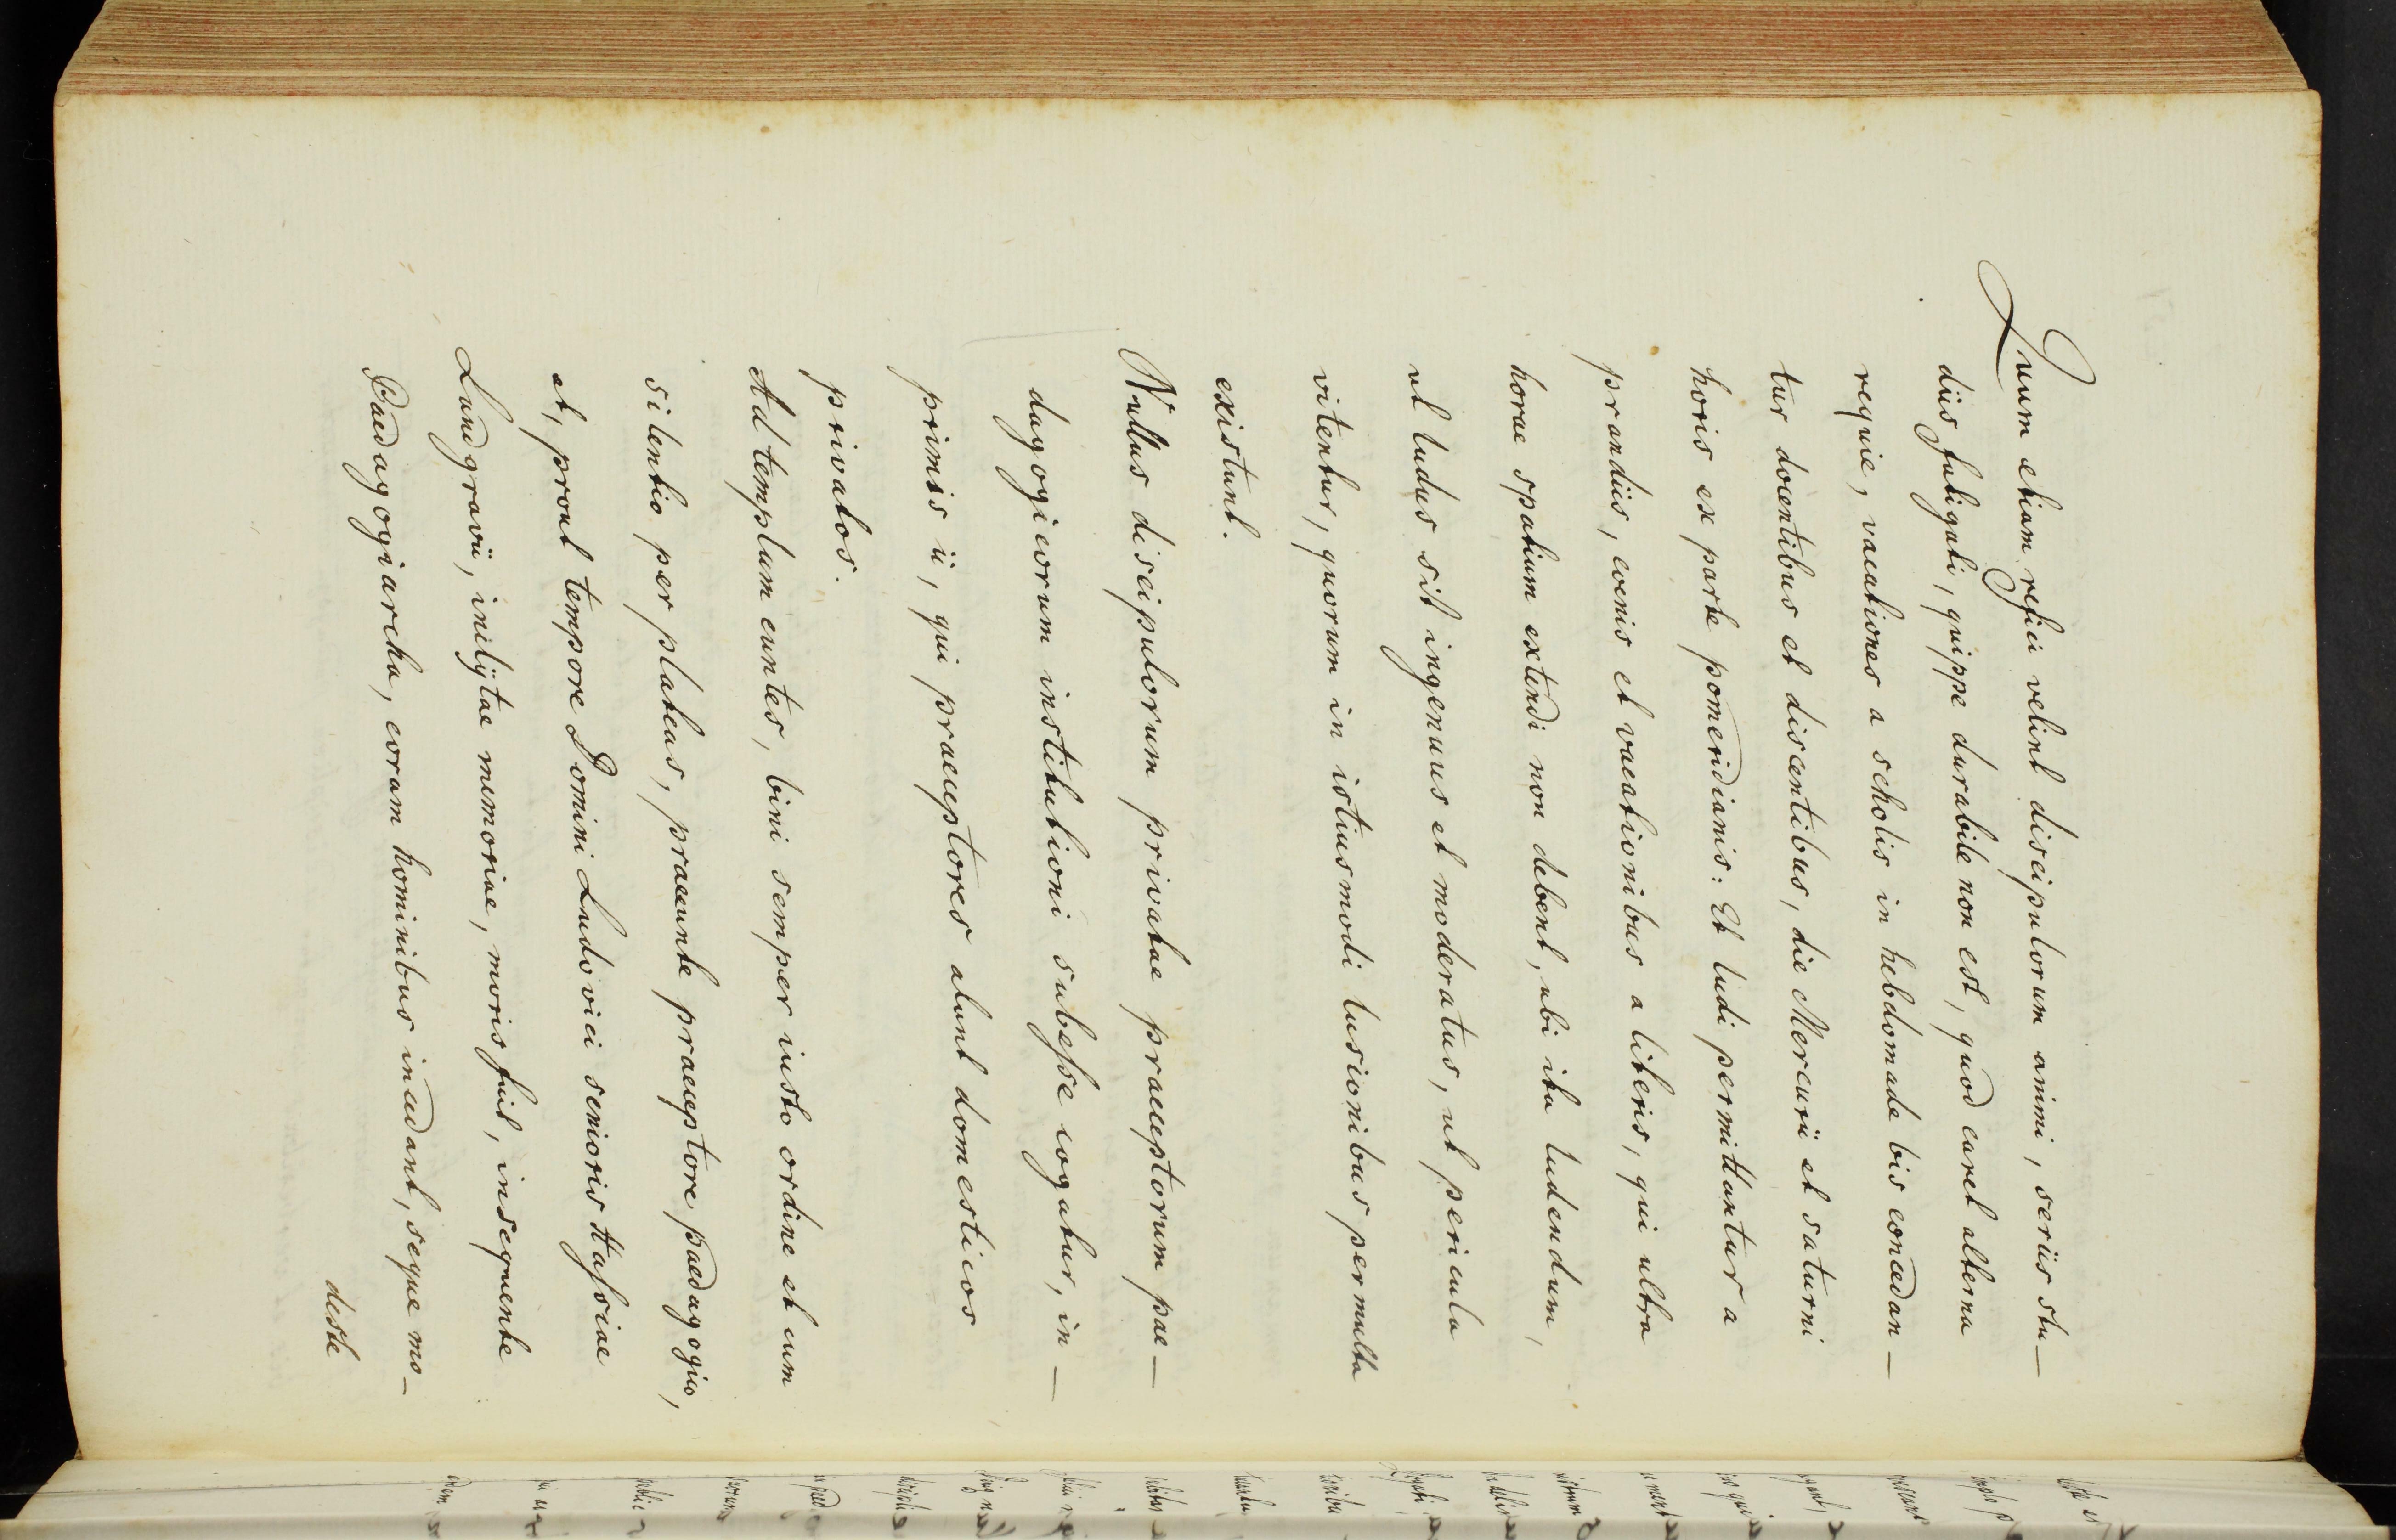 Quum etiam refici velint discipulorum animi, seriis stu-
diis fatigati, quippe durabile non est, quod caret alterna
requie, vacationes a scholis in hebdomade bis concedan-
tur docentibus et discentibus, die Mercurii et saturni
horis ex parte pomeridianis: Et ludi permittantur a
prandiis, coenis et vacationibus a literis, qui ultra
horae spatium extendi non debent, ubi ita ludendum,
ut ludus sit ingenuus et moderatus, ut pericula
vitentur, quorum in istiusmodi lusionibus permulta
existunt.
Nullus discipulorum privatae praeceptorum pae-
dagogicorum institutioni subesse cogatur, in-
primis ii, qui praeceptores alunt domesticos
privatos.
Ad templum euntes, bini semper iusto ordine et cum
silentio per plateas, praeeunte praeceptore paedagogico,
et, prout tempore Domini Ludovici senioris Hassiae
Landgravii, inclytae memoriae, moris fuit, insequente
Paedagogiarcha, coram hominibus incedant, seque mo-
deste